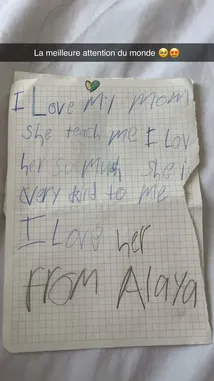 La meilleure attention du monde 🥺😍
I Love my mom
she teach me I Lov
her so much she i
very kind to me
I Love her
FROM Alaya